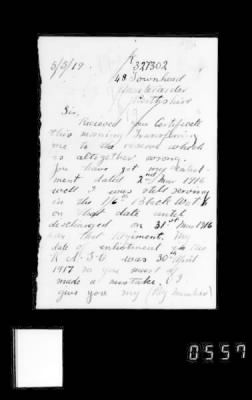 5/3/19.
R
327302
48 Townhead
Auchterarder
Perthshire
Sir,
Received your Certificate
this morning Transfering
me to the reserve which
is altogether wrong.
You have got my enlist
ment dated 2nd Mar 1916
well I was still serving
in the 1/6th Black Watch
on that date until
discharged on 31st Mar 1916
from that Regiment. My
date of enlistment in the
R N
was 30th April
1917 so you must of
made a mistake. I
give you my (Reg number)
0557